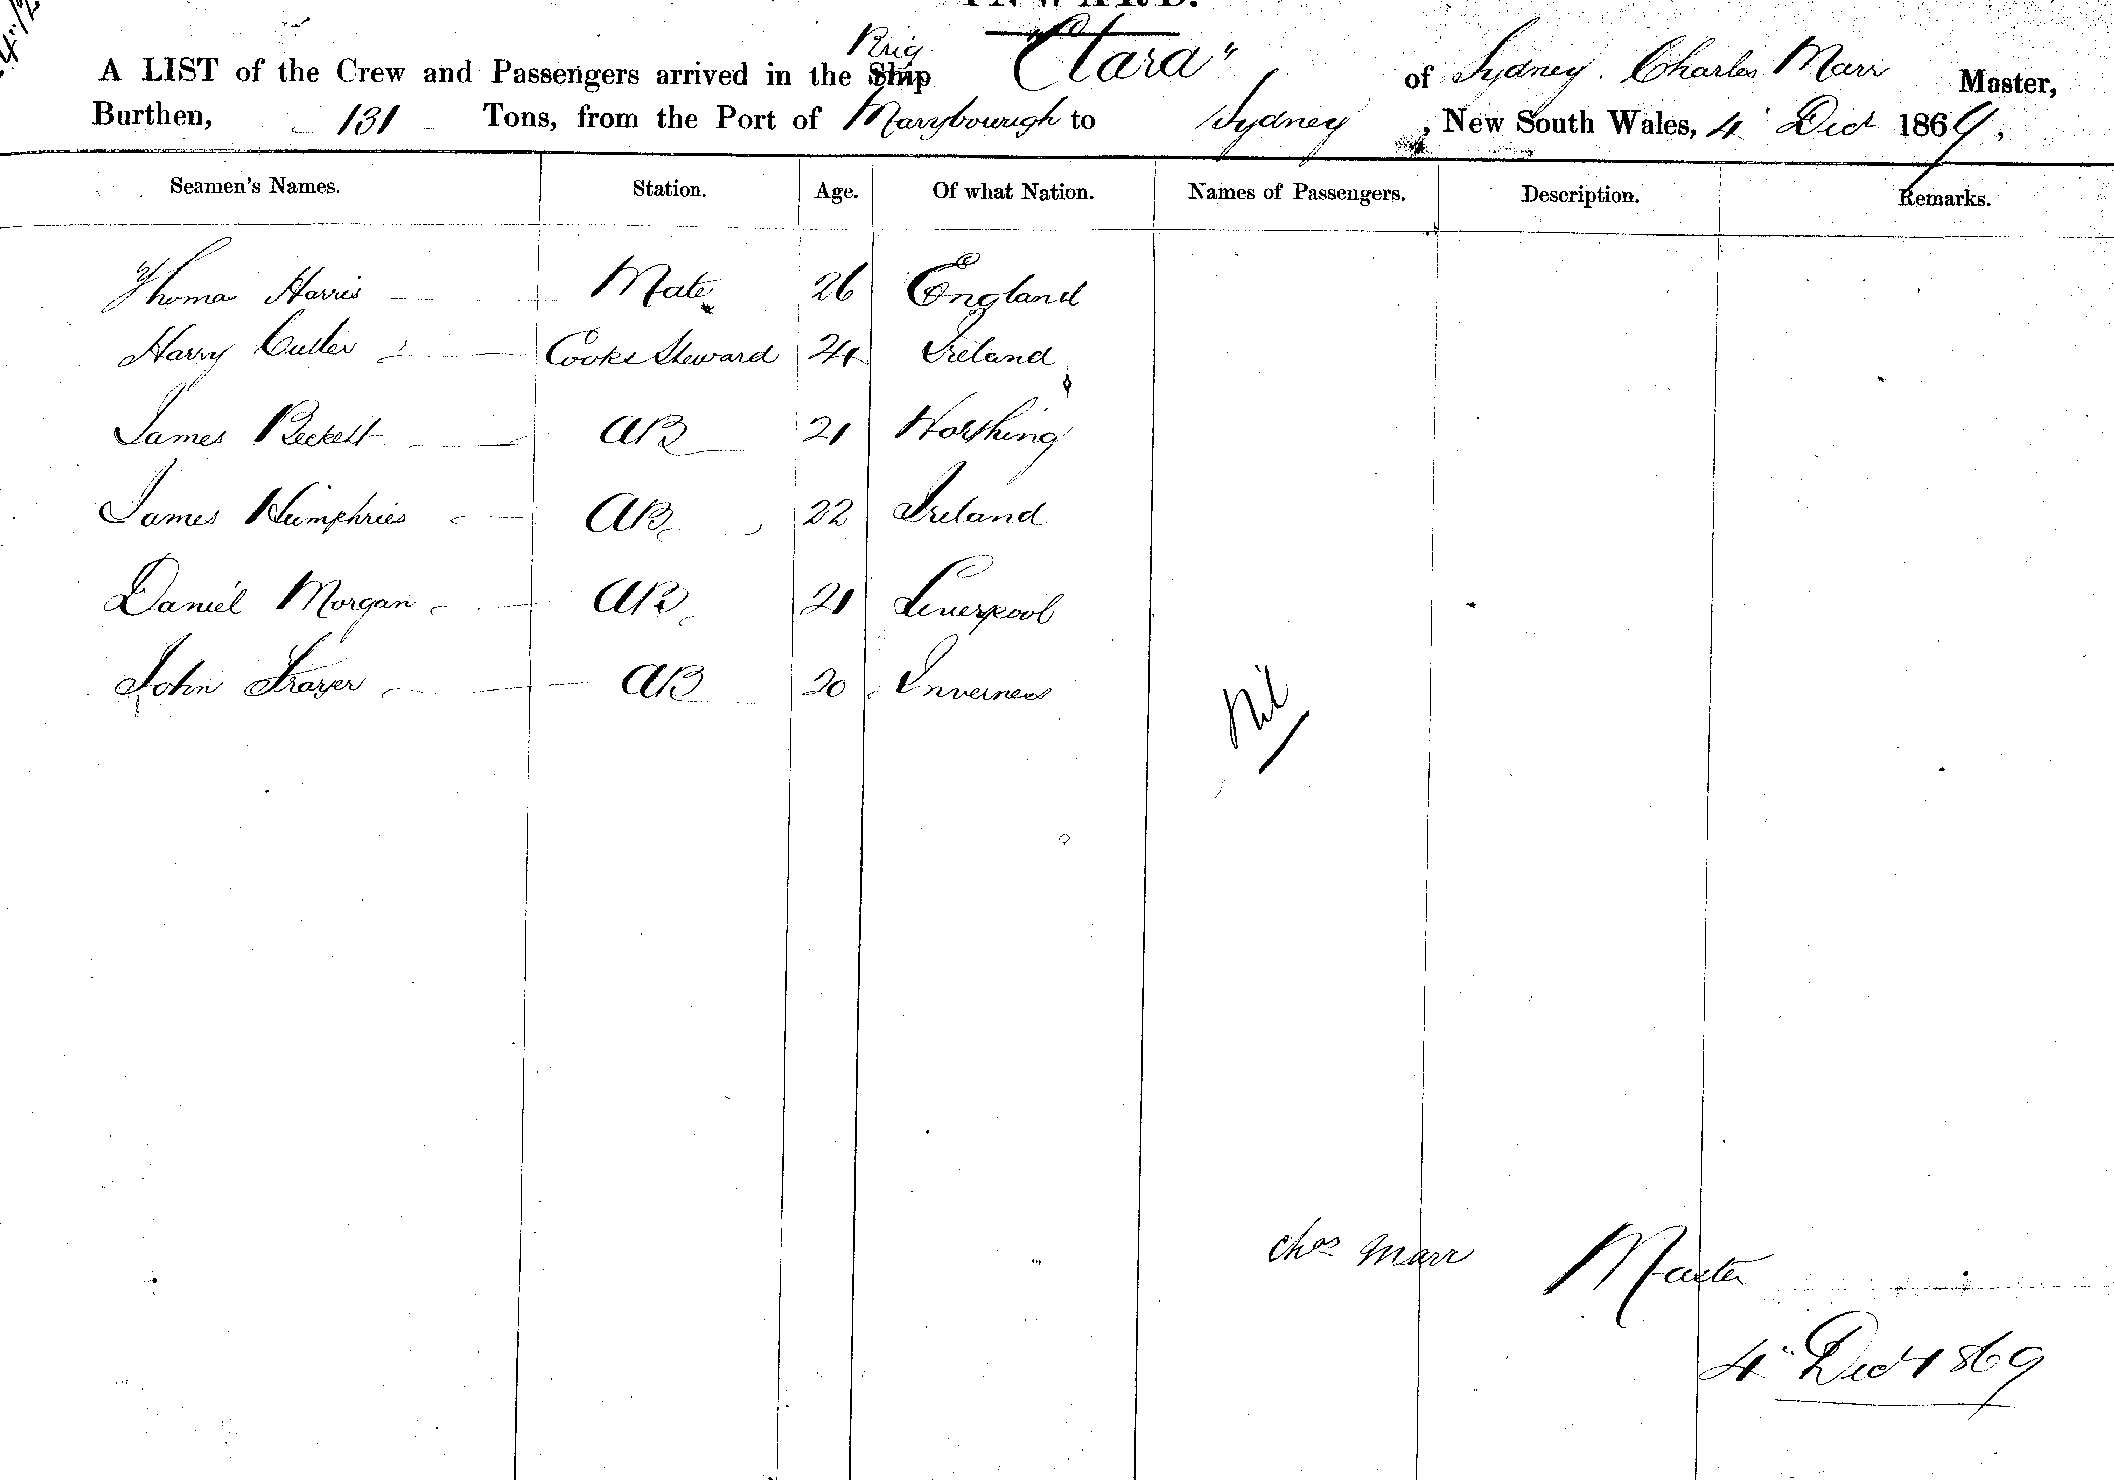 INWARD.
A LIST of the Crew and Passengers arrived in the Ship Brig "Clara" of Sydney. Charles Marr Master,
Burthen, 131 Tons, from the Port of Marybourugh to Sydney, New South Wales, 4 Dect 1869.
Seamen's Names. Station. Age. Of what Nation. Names of Passengers. Description. Remarks.
Thomas Harris Mate 26 England
Harry Cutler Cook & Steward 24 Ireland
James Beckett AB 21 Worthing
James Humphries AB 22 Ireland
Daniel Morgan AB 21 Liverpool
John Frazer AB 20 Inverness
Nil
Chas Marr Master
4" Dect 1869